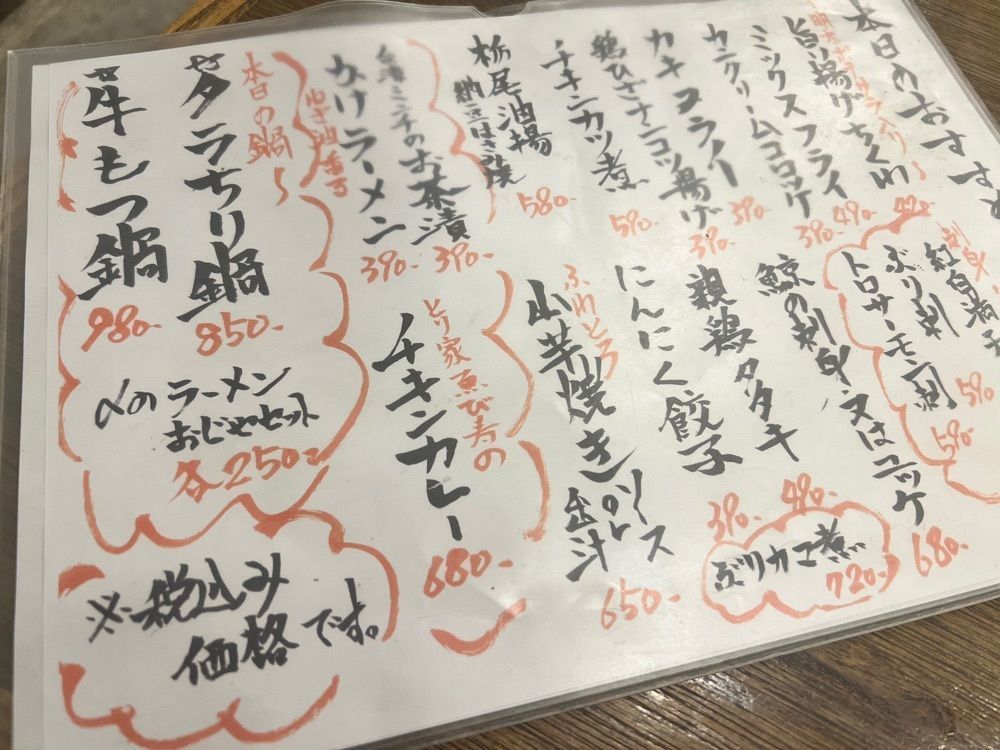 本日のおすすめ
明太ポテサラ入り
旨い揚げちくわ
490-
ミックスフライ
490-
カニクリームコロッケ
390-
カキフライ
390-
鶏ひざナンコツ揚げ
390-
チキンカツ煮
590-
栃尾油揚
納豆はさみ焼
580-
台湾ミンチのお茶漬
390-
ねぎ油香る
かけラーメン
390-
刺身
紅白
ぶり刺
590-
トロサーモン刺
590-
鯨の刺身 又はユッケ
680-
親鶏タタキ
490-
にんにく餃子
390-
ぶりカマ煮
720-
ふわとろ
山芋焼き
ソース
or
出汁
650-
とり家ゑび寿の
チキンカレー
680-
本日の鍋
タラちり鍋
850-
牛もつ鍋
980-
〆のラーメン
おじやセット
各250-
※税込み
価格です。